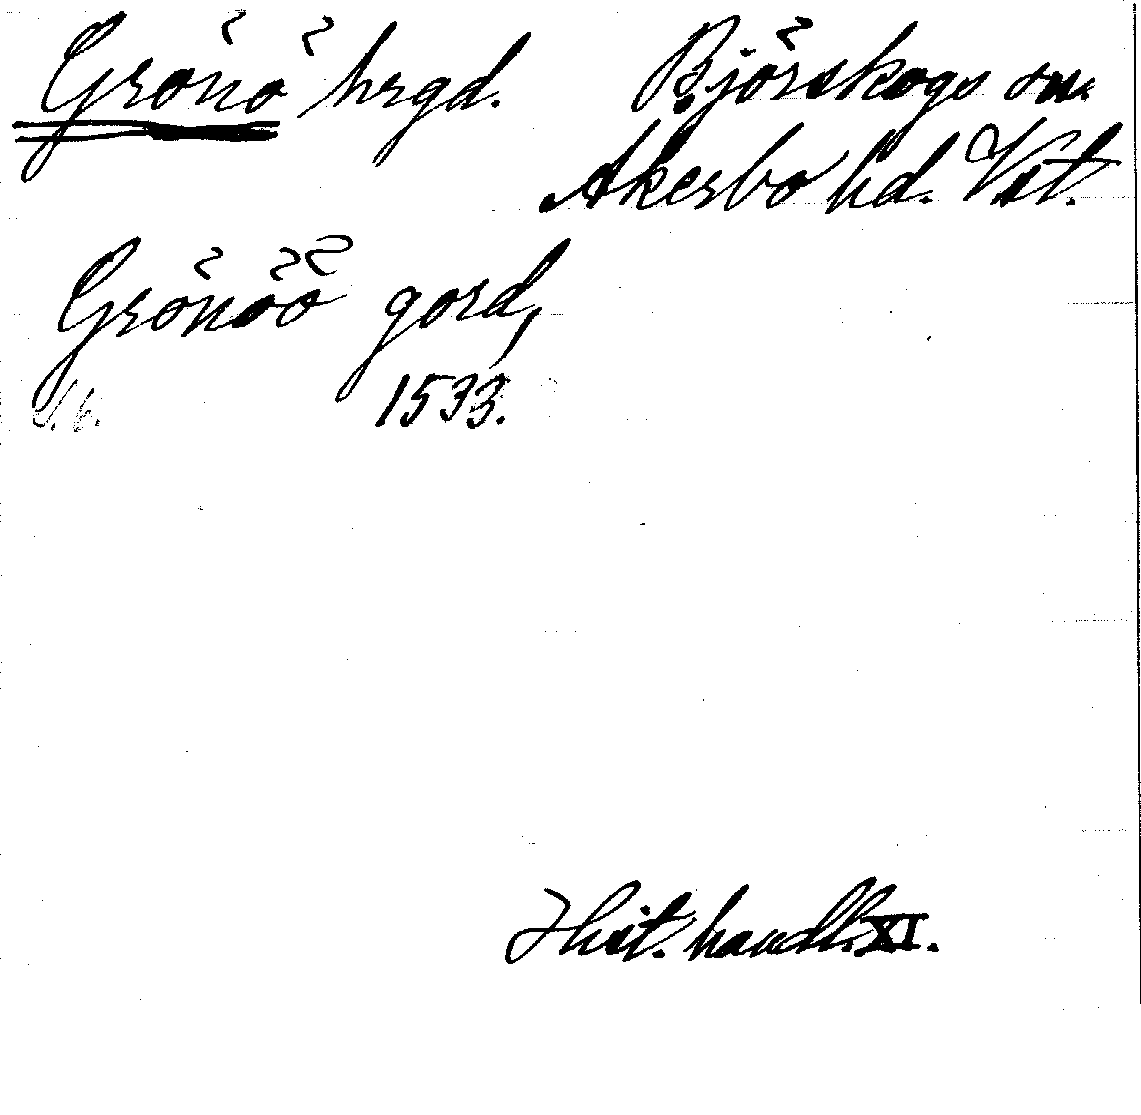 Grönö hrgd. Björskogs sn.
Åkerbo hd. Vst.
Grönöö gord,
1533.
Hist. handl. XI.